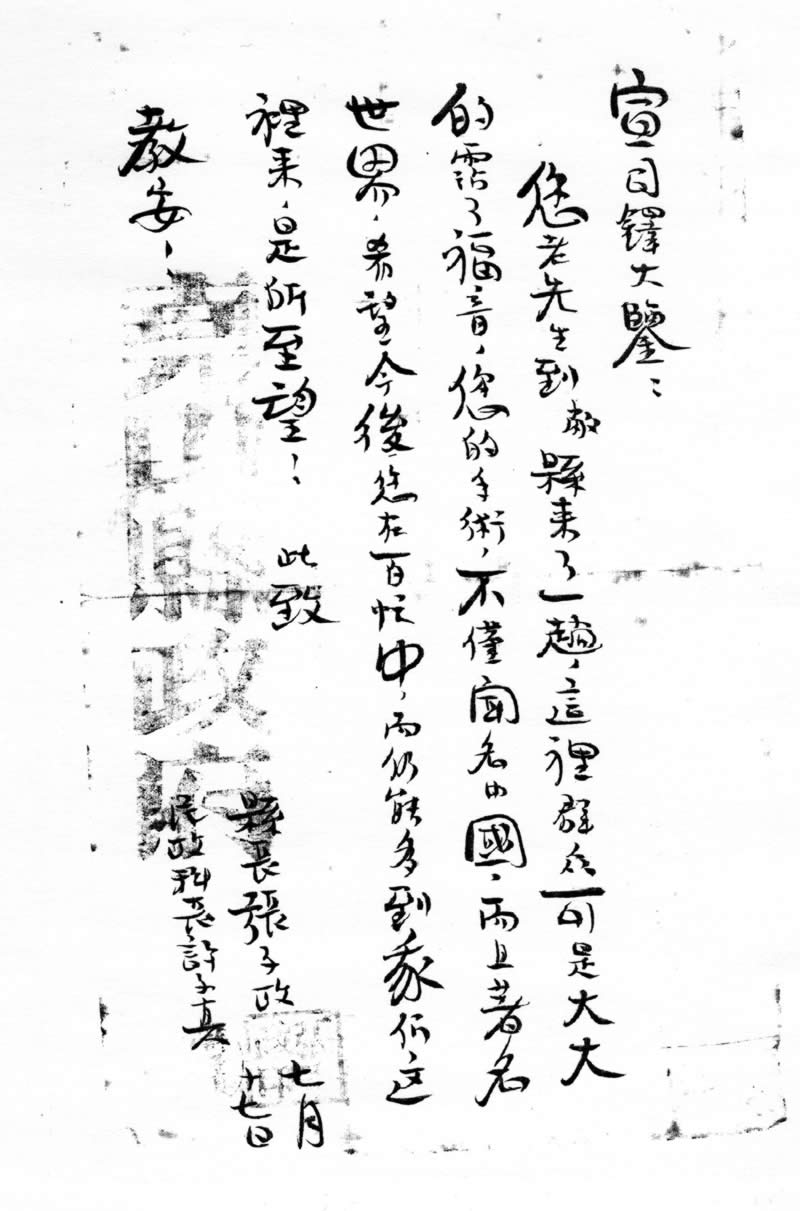 宣司鐸大鑒：
您老先生到敝縣来了一趟，這裡群众可是大大
的霑了福音，您的手術，不僅聞名中國，而且著名
世界，希望今後您在百忙中，而仍能多到我们这
裡来，是所至望：　此致
教安：
縣政府
縣長張子政
民政科長許子真
七月
十七日